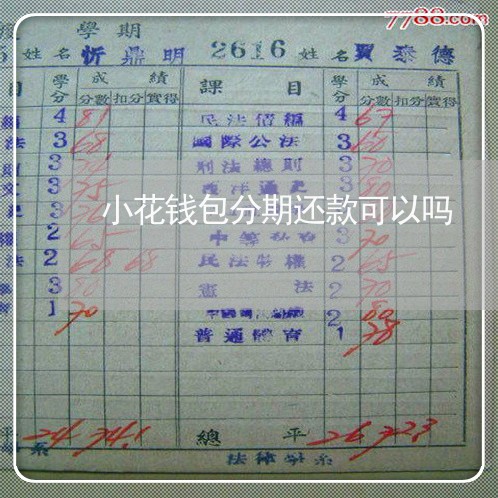 7788.com
學期
姓名 忻鼎明 2616 姓名 賈泰德
目 學分 成績 課目 學分 成績
分數 扣分 實得 分數 扣分 實得
4 81 民法債編 4 67
法 3 68 國際公法 3 60
3 刑法總則 3 70
文 3 75 西洋通史 3 80
小花钱包分期还款可以吗
2 65 3 70
法 2 68 68 民法物權 2 65
3 80 憲法 2 70
1 70 2 80
普通體育 1 78
平 24 74.1 總平 26 72.3
系 法律學系